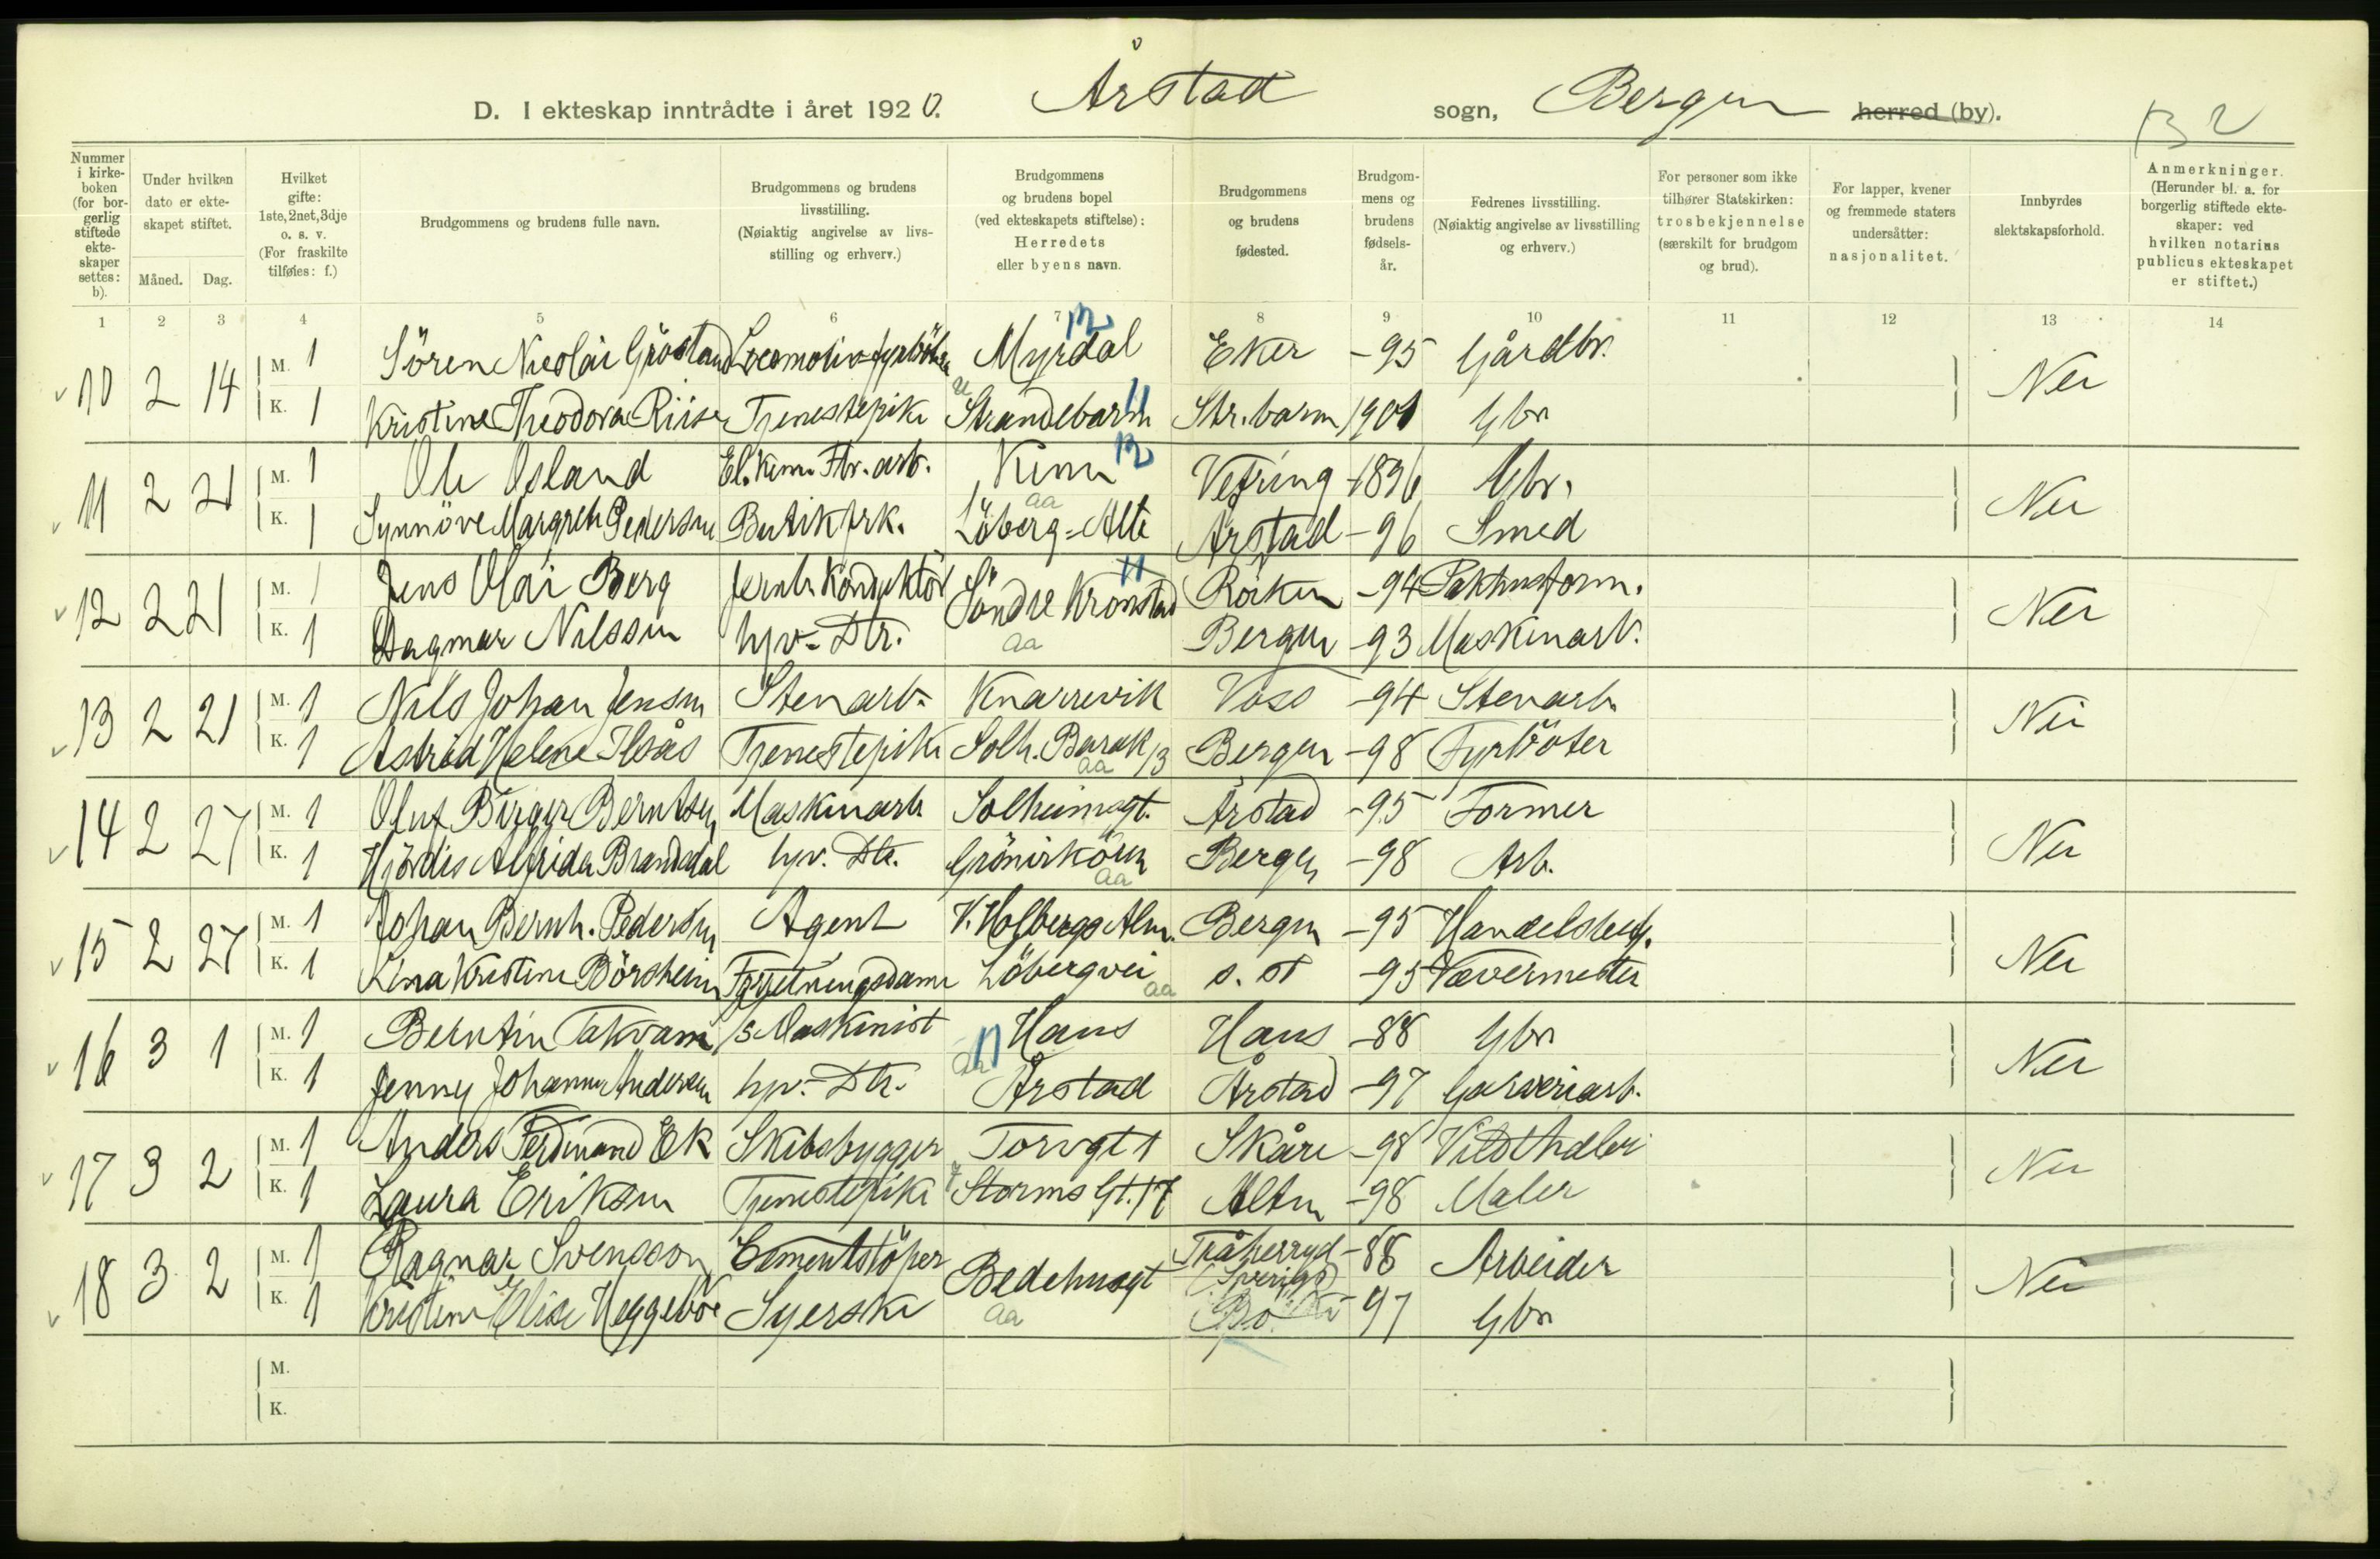 D. I ekteskap inntrådte i året 1920. Årstad sogn, Bergen herred (by). B 2
Nummer i kirkeboken (for borgerlig stiftede ekteskaper settes: b).
Under hvilken dato er ekteskapet stiftet.
Måned. Dag.
Hvilket gifte: 1ste, 2net, 3dje o. s. v. (For fraskilte tilføies: f.)
Brudgommens og brudens fulle navn.
Brudgommens og brudens livsstilling. (Nøiaktig angivelse av livsstilling og erhverv.)
Brudgommens og brudens bopel (ved ekteskapets stiftelse): Herredets eller byens navn.
Brudgommens og brudens fødested.
Brudgommens og brudens fødselsår.
Fedrenes livsstilling. (Nøiaktig angivelse av livsstilling og erhverv.)
For personer som ikke tilhører Statskirken: trosbekjennelse (særskilt for brudgom og brud).
For lapper, kvener og fremmede staters undersåtter: nasjonalitet.
Innbyrdes slektskapsforhold.
Anmerkninger. (Herunder bl. a. for borgerlig stiftede ekteskaper: ved hvilken notarius publicus ekteskapet er stiftet.)
1 2 3 4 5 6 7 8 9 10 11 12 13 14
10 2 14 M. 1 Sören Nicolai Gröstand Locomotivfyrböter Myrdal 12 Eker -95 Gårdbr. Nei
K. 1 Kristine Theodora Riise Tjenestepike Strandebarm 11 Str.barm 1901 Gbr
11 2 21 M. 1 Ole Osland El. kem. Fbr. arb. Kinn 12 Vefring 1896 Gbr. Nei
K. 1 Synnöve Margrethe Pedersen Butikfrk. Löberg-Alle aa Årstad -96 Smed
12 2 21 M. 1 Jens Olai Berg Jernb. Konduktör Söndre Kronstad 11 Röken -94 Pakhusform. Nei
K. 1 Dagmar Nilssen hjv. Dtr. aa Bergen -93 Maskinarb.
13 2 21 M. 1 Nils Johan Jensen Stenarb. Knarrevik Voss -94 Stenarb. Nei
K. 1 Astrid Helene Ilsås Tjenestepike Solh. Barak 13 aa Bergen -98 Fyrböter
14 2 27 M. 1 Oluf Birger Berntsen Maskinarb. Solheimsgt. Årstad -95 Former Nei
K. 1 Hjördis Alfrida Brandsdal hjv. Dtr. aa Bergen -98 Arb.
15 2 27 M. 1 Johan Bernh. Pedersen Agent V. Holbergs Alm. Bergen -95 Handelsbetj. Nei
K. 1 Lina Kristine Börsheim Forretningsdame Löbergvei aa s. st -95 Vævermester
16 3 1 M. 1 Berntin Takvam Maskinist Haus 11 Haus -88 Gbr Nei
K. 1 Jenny Johanne Andersen hjv. Dtr. Årstad Årstad -97 Garveriarb.
17 3 2 M. 1 Anders Ferdinand Ek Skibsbygger Torvgt 1 Skåre -98 Vildthdler Nei
K. 1 Laura Eriksen Tjenestepike Storms Gt. 17 Alten -98 Maler
18 3 2 M. 1 Ragnar Svensson Cementstöper Bedehusgt Tråheryd (Sverige) -88 Arbeider Nei
K. 1 Kristine Elise Heggebö Syerske aa Bö 97 Gbr
M.
K.